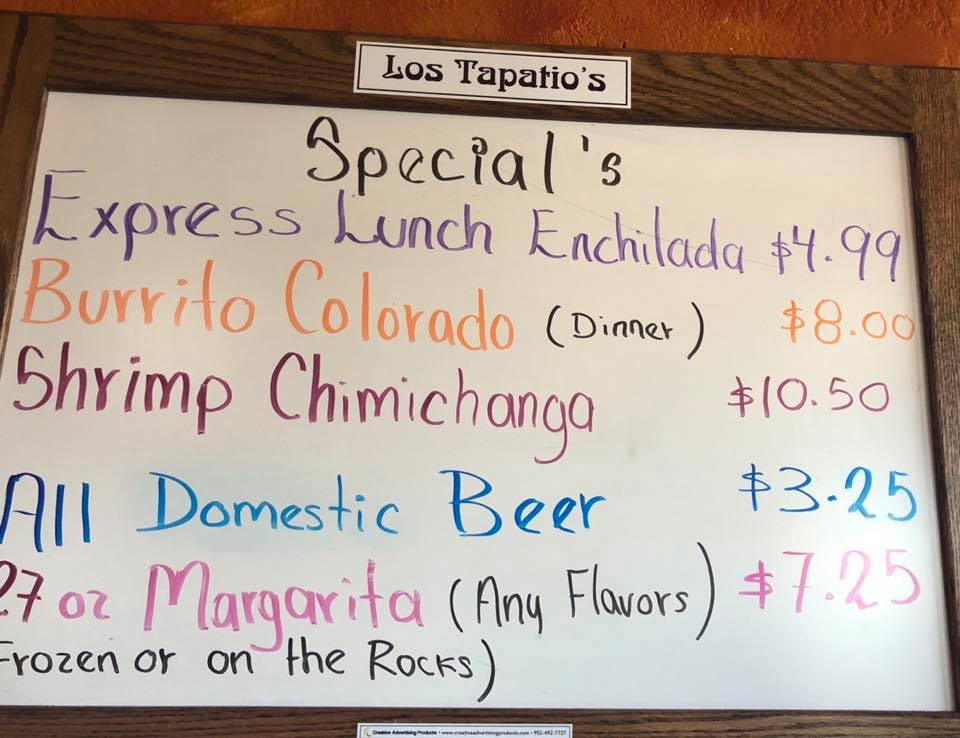 Los Tapatio's
Special's
Express Lunch Enchilada $4.99
Burrito Colorado (Dinner) $8.00
Shrimp Chimichanga $10.50
All Domestic Beer $3.25
27 oz Margarita (Any Flavors) $7.25
Frozen or on the Rocks)
Creative Advertising Products • www.creativeadvertisingproducts.com • 952-492-7727